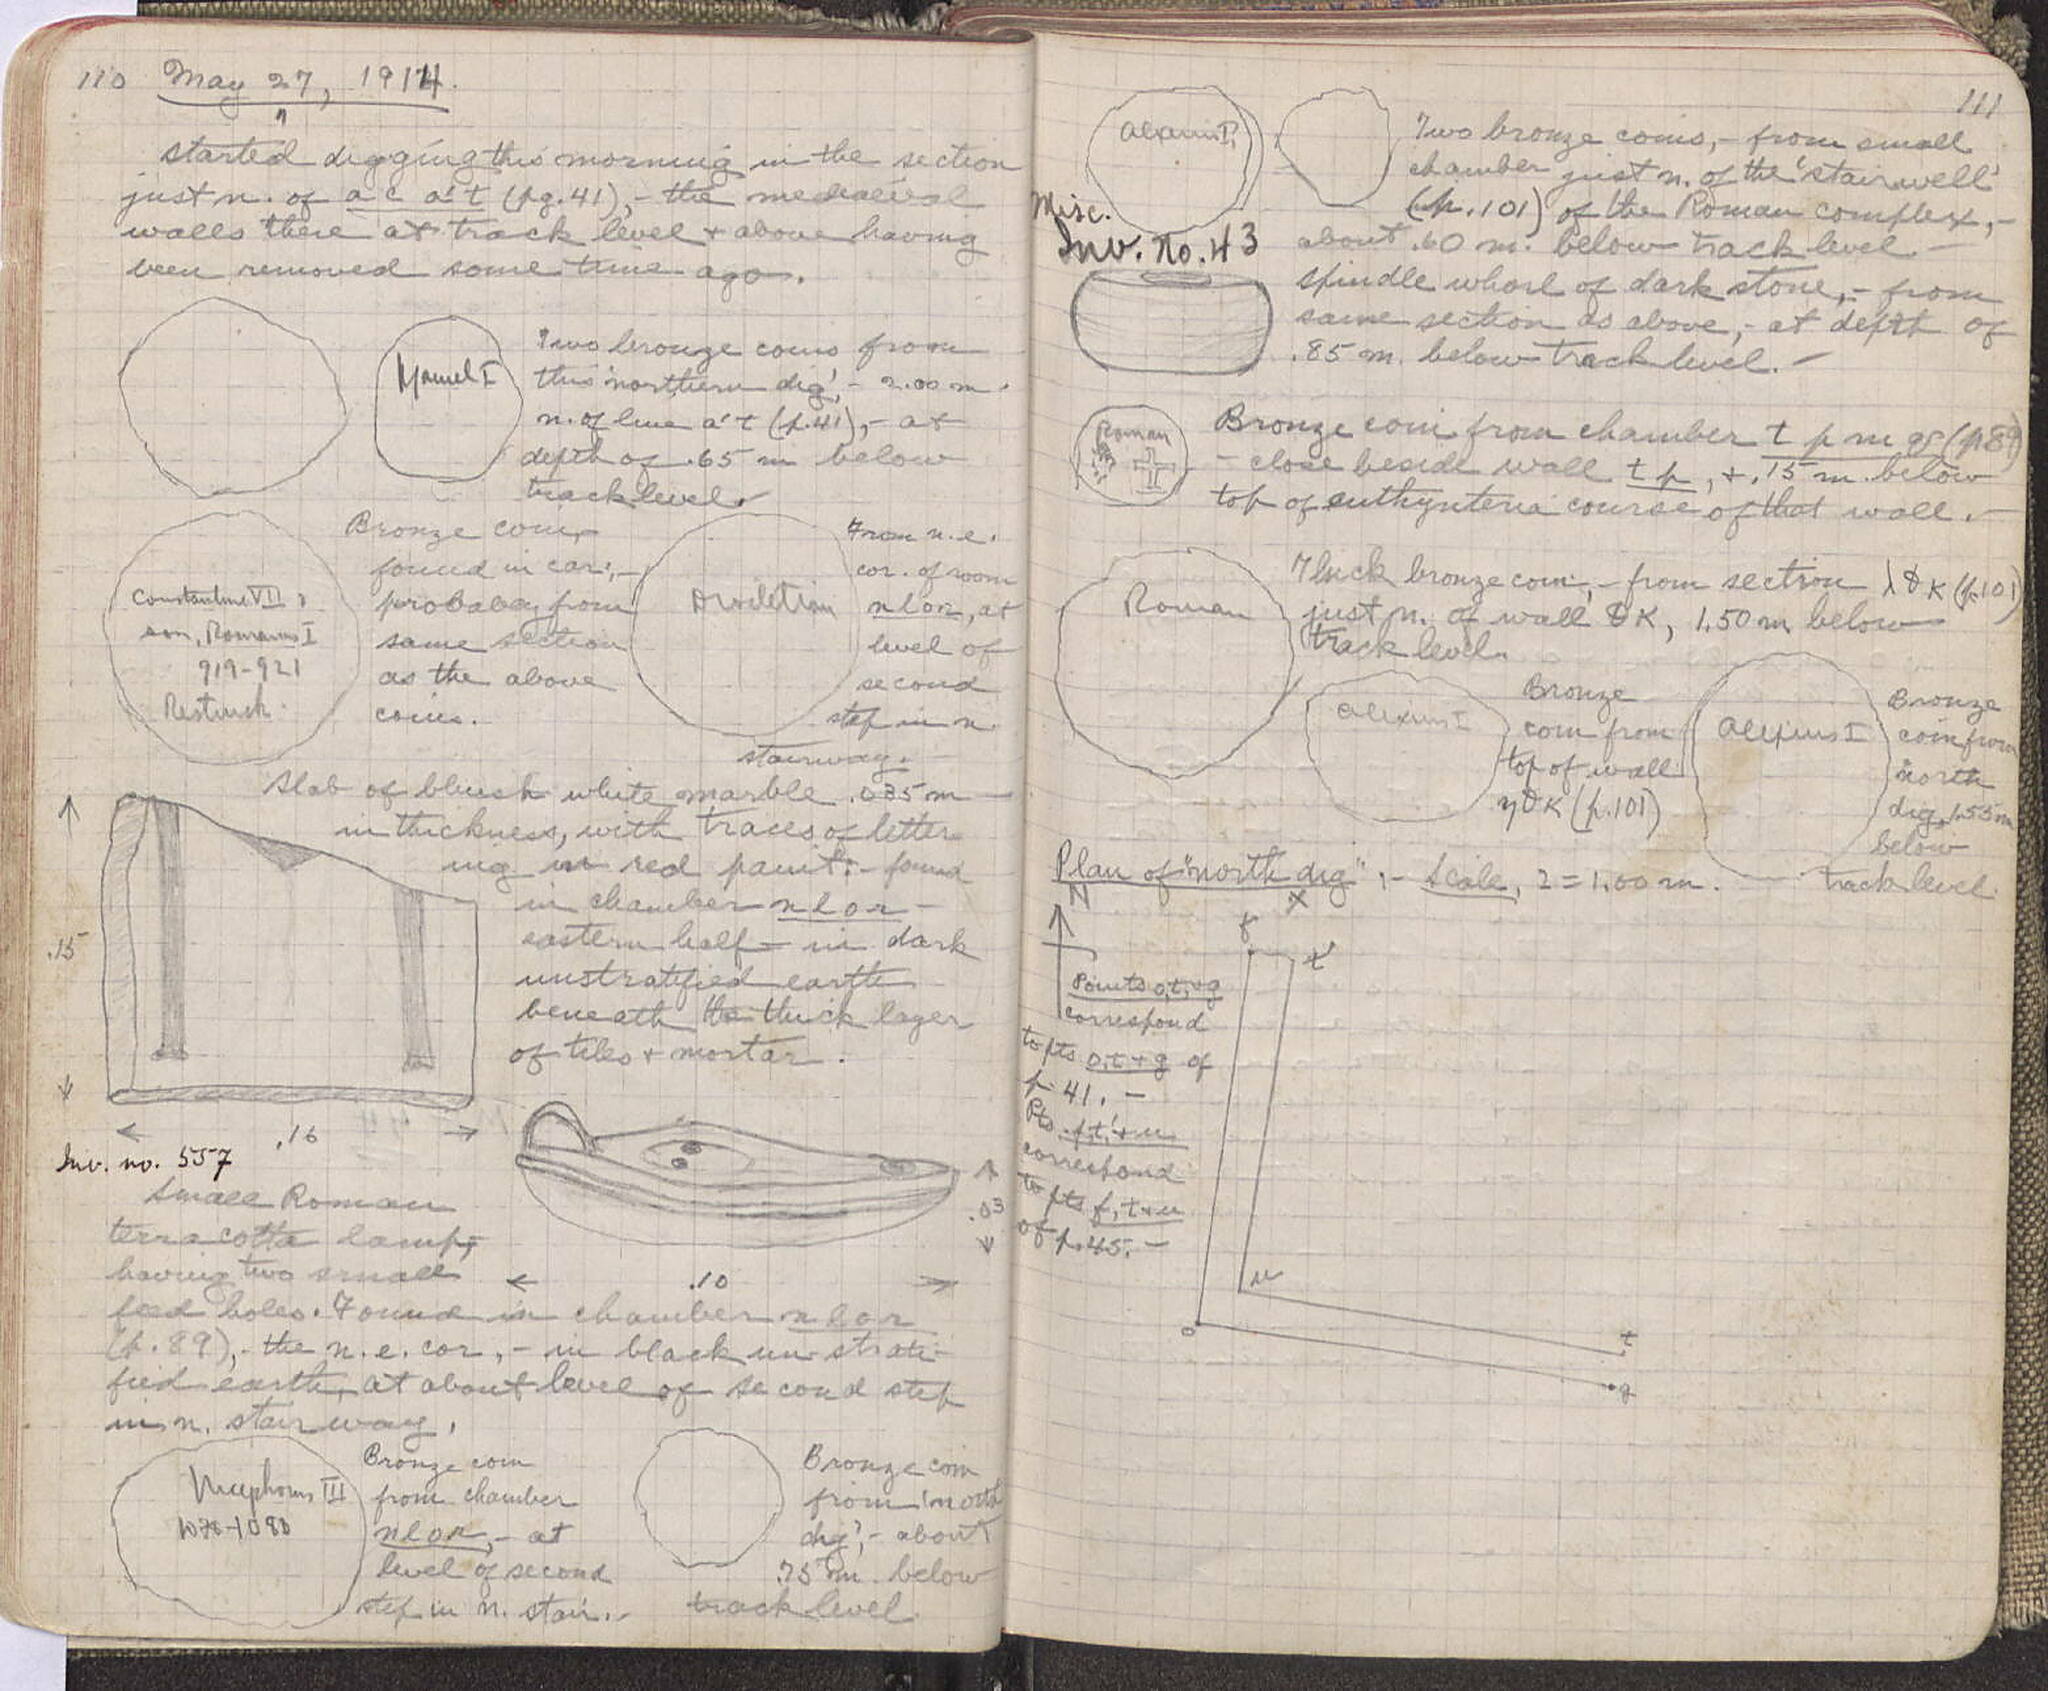 110 May 27, 1914.
"
started digging this morning in the section
just n. of a c a' t (pg. 41),- the mediaeval
walls there at track level + above having
been removed some time ago.
Manuel I
Two bronze coins from
this 'northern dig', - 2.00 m.
n. of line a' t (p.41),- at
depth of .65 m below
track level.
Constantine VII,
son, Romanus I
919-921
Restruck.
Bronze coin,
found in car,-
probably from
same section
as the above
coins.
From n.e.
cor. of room
n l o r, at
level of
second
step in n.
stairway.
Slab of bluish white marble .035 m
in thickness, with traces of letter
ing in red paint:- found
in chamber n l o r -
eastern half - in dark
unstratified earth
beneath the thick layer
of tiles + mortar.
.15
.16
Inv. no. 557
Small Roman
terra cotta lamp,
having two small
feed holes. Found in chamber n l o r
(p. 89),- the n.e. cor.,- in black unstrati-
fied earth, at about level of second step
in n. stairway.
.03
.10
Nicephorus III
1078-1080
Bronze coin
from chamber
n l o r,- at
level of second
step in n. stair.-
Bronze coin
from 'north
dig',- about
.75 m. below
track level.
111
Alexius I
Two bronze coins,- from small
chamber just n. of the 'stairwell'
(p.101) of the Roman complex,-
about .60 m. below track level.-
Misc.
Inv. No. 43
spindle whorl of dark stone,- from
same section as above,- at depth of
.85 m. below track level.-
Roman
Bronze coin from chamber t p m (p 89)
- close beside wall t p, +.15 m. below
top of euthynteria course of that wall.-
Roman
Thick bronze coin,- from section λ θ κ (p.101)
just n. of wall θ κ, 1.50 m below
track level.
Alexius I
Bronze
coin from
top of wall
η θ κ (p.101)
Alexius I
Bronze
coin from
north
dig, 1.55 m
below
track level.
Plan of "north dig",- Scale, 2 = 1.00 m.
N
x
f
t'
Points o, t, + g
correspond
to pts o, t + g of
p. 41.-
Pts. f, t', + u
correspond
to pts f, t + u
of p. 45.-
u
o
t
g